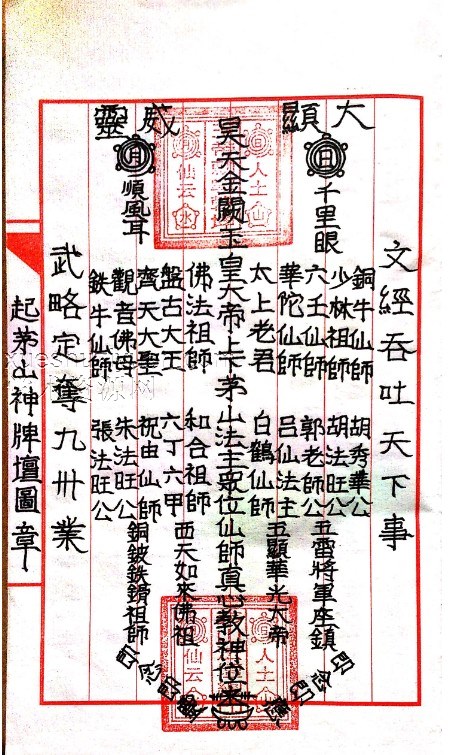 大顯威靈
日
千里眼
月
順風耳
文經吞吐天下事
銅牛仙師 胡秀華公
少林祖師 胡法旺公 五雷將軍座鎮
六壬仙師 郭老師公
華陀仙師 呂仙法主 五顯華光大帝
太上老君 白鶴仙師
昊天金闕玉皇大帝上下茅山法主眾位仙師真心教神位
佛法祖師 和合祖師
盤古大王 六丁六甲 西天如來佛祖
齊天大聖 祝由仙師
觀音佛母 朱法旺公 銅鈸鉄鎖祖師
鉄牛仙師 張法旺公
武略定奪九州業
起茅山神牌壇圖章
人土山
仙云水
人土山
仙云